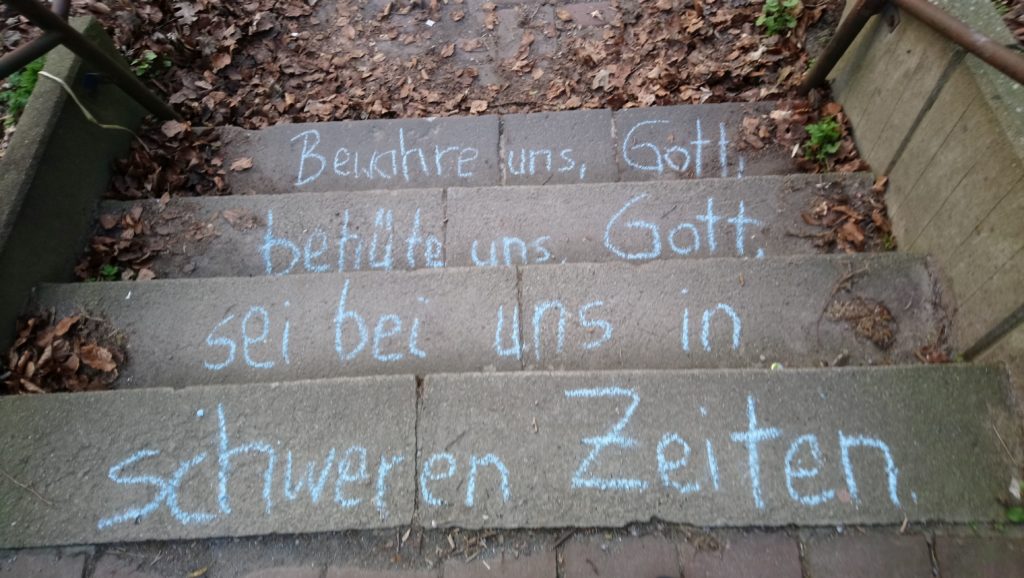 Bewahre uns, Gott,
behüte uns, Gott,
sei bei uns in
schweren Zeiten.